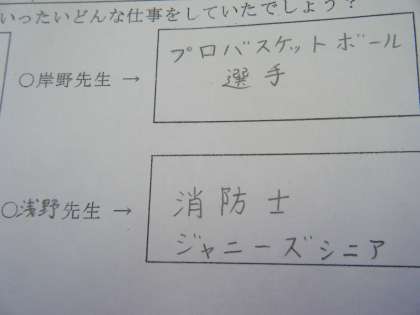 いったいどんな仕事をしていたでしょう？
○岸野先生 → プロバスケットボール
選手
○浅野先生 → 消防士
ジャニーズシニア